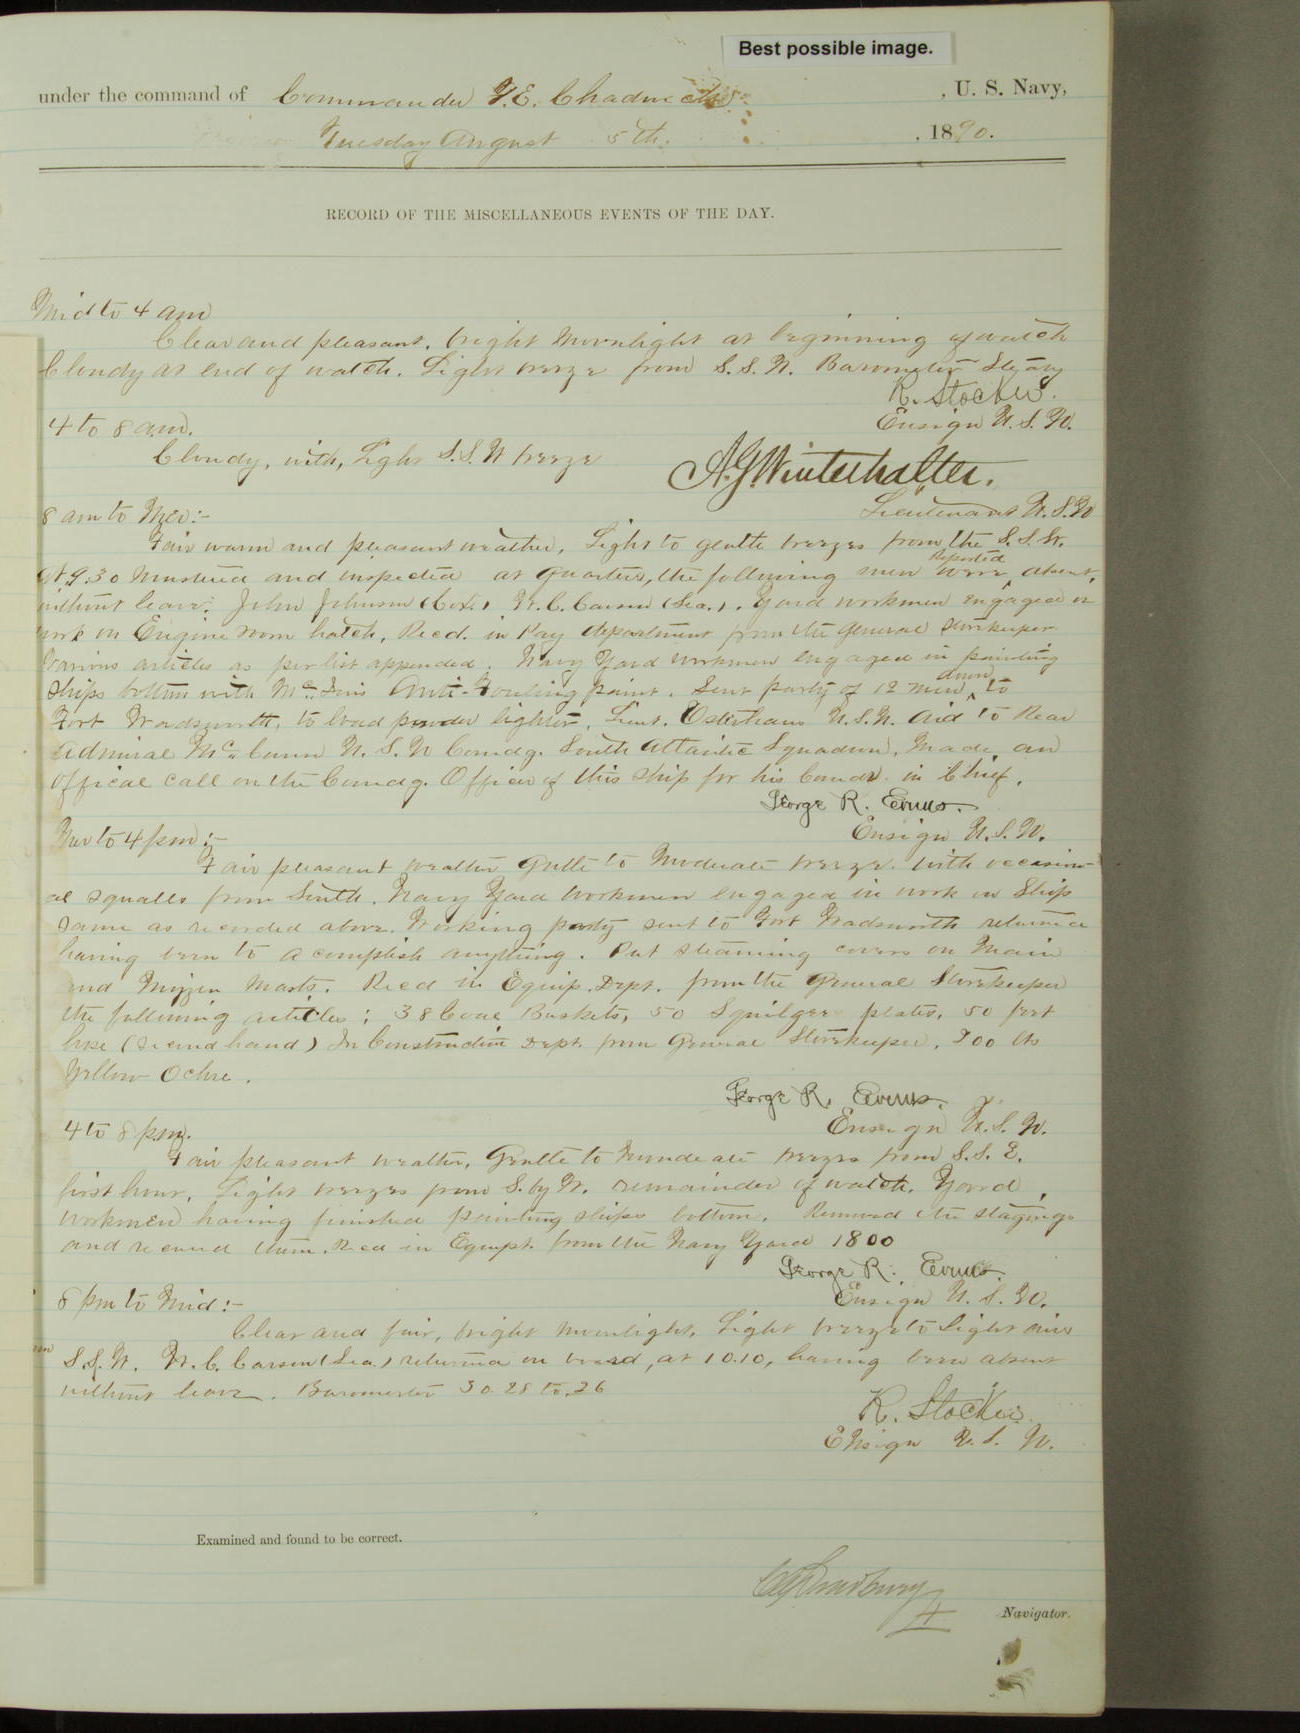 Best possible image.
under the command of Commander F.E. Chadwick , U. S. Navy,
Tuesday August 5th. , 1890.
RECORD OF THE MISCELLANEOUS EVENTS OF THE DAY.
Mid to 4 am
Clear and pleasant, bright moonlight at beginning of watch
Cloudy at end of watch. Light breeze from S.S.W. Barometer Steady
R. Stocker.
Ensign U.S.N.
4 to 8 a.m.
Cloudy, with, Light S.S.W breeze
A.G. Winterhalter.
Lieutenant U.S.N
8 am to Mer:-
Fair warm and pleasant weather, Light to gentle breezes from the S.S.W.
At 9.30 Mustered and inspected at Quarters, the following men were reported absent,
without leave: John Johnson (Cox.) W.C. Carson (Sea.). Yard workmen engaged on
work on Engine room hatch, Recd. in Pay department from the General Storekeeper
Various articles as per list appended. Navy Yard workmen engaged in painting
Ships bottom with Anti-Fouling paint. Sent party of 12 men down to
Fort Wadsworth, to load powder lighter. Lieut. U.S.N. Aid to Rear
Admiral McCann U.S.N Comdg. South Atlantic Squadron, Made an
offical call on the Comdg. Officer of this ship for his Comdr. in Chief.
George R. Evans.
Ensign U.S.N.
Mer to 4 pm:-
Fair pleasant weather Gentle to Moderate breeze with occasion-
al squalls from South. Navy Yard Workmen engaged in work on Ship
same as recorded above. Working party sent to Fort Wadsworth returned
having been to accomplish anything. Put steaming covers on Main
and Mizzen Masts. Recd in Equip. Dept. from the General Storekeeper
the following articles; 38 Coal Baskets, 50 Squilgee plates, 50 feet
hose (second hand) In Construction Dept. from General Storekeeper, 200 lbs
Yellow Ochre.
George R. Evans.
Ensign U.S.N.
4 to 8 p.m.
Fair pleasant weather, Gentle to moderate breezes from S.S.E.
first hour, Light breezes from S. by W. remainder of watch. Yard
workmen having finished painting ships bottom. Removed the stagings
and them. Recd in Equipt. from the Navy Yard 1800
George R. Evans.
Ensign U.S.N.
8 pm to Mid:-
Clear and fair, bright moonlight, Light breeze to light airs
S.S.W. W.C. Carson (Sea.) returned on board, at 10.10, having been absent
without leave. Barometer 30.28 to .26
R. Stocker.
Ensign U.S.N.
Examined and found to be correct.
Navigator.